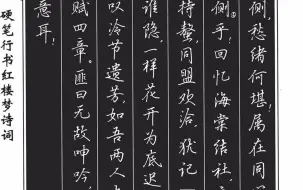 侧，愁绪何堪，属在同
侧乎，回忆海棠结社，
持螯，同盟欢洽，犹记
谁隐，一样花开为底迟
叹冷节遗芳，如吾两人
赋四章。匪曰无故呻吟，
意耳！
硬笔行书红楼梦诗词